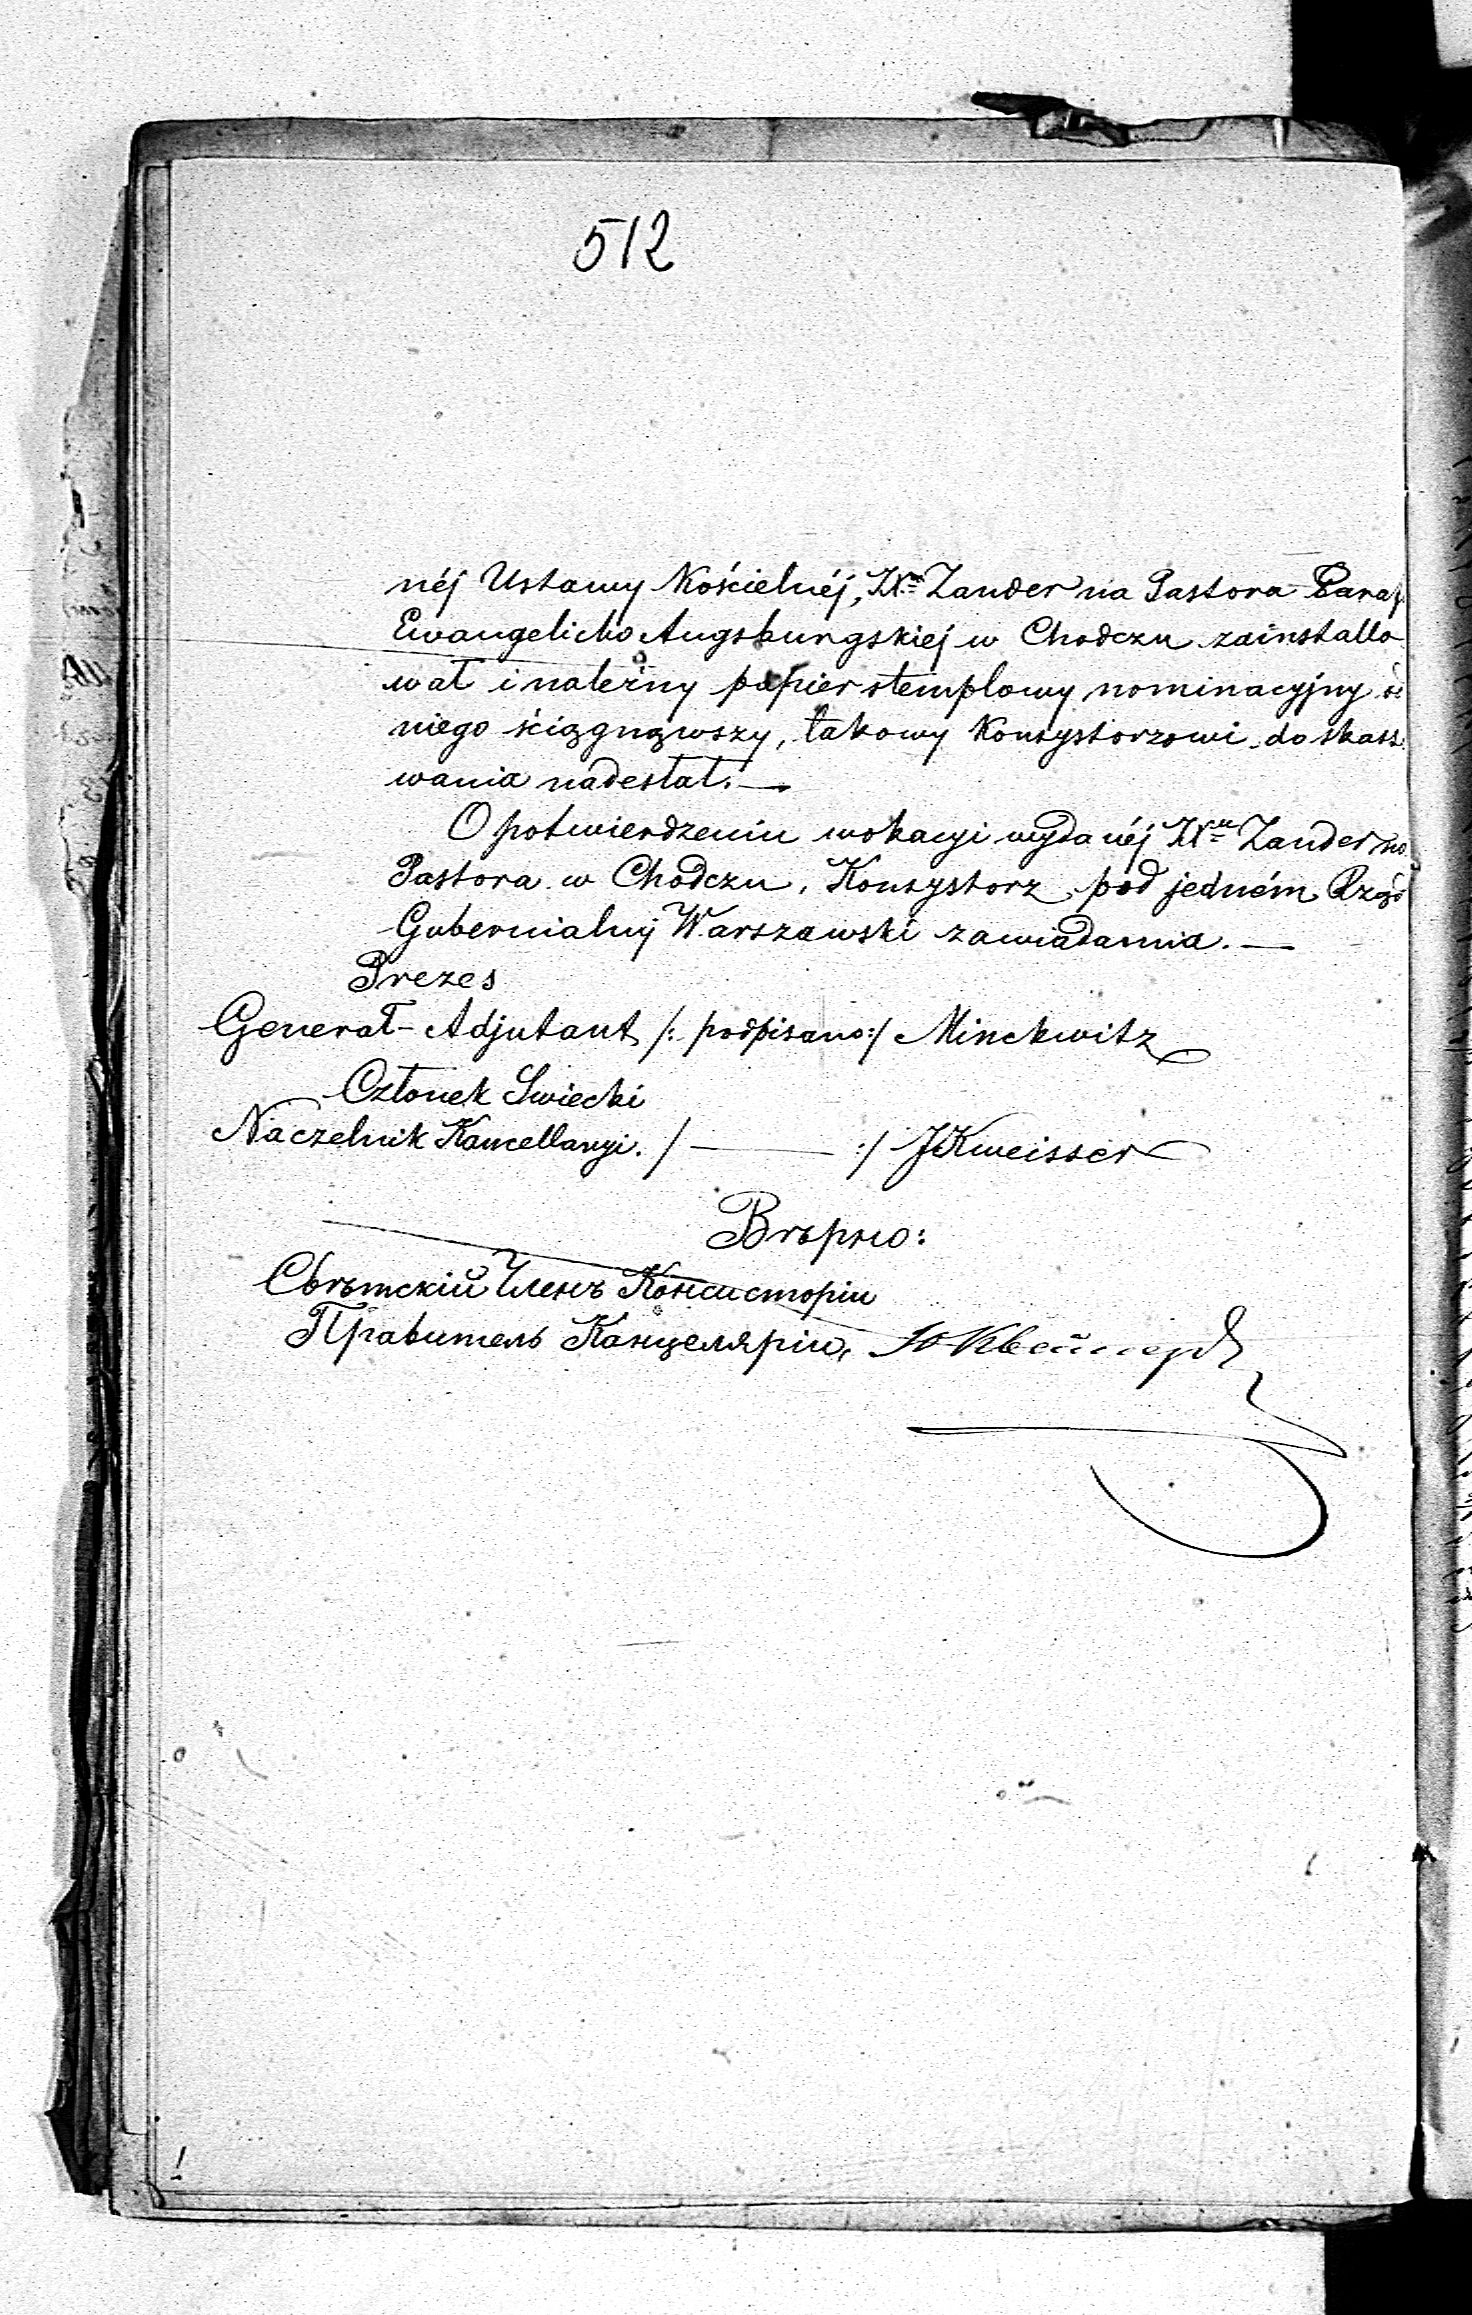 512
néj Ustawy Kościelnéj, X. Zander na Pastora Paraf
Ewangelicko Augsburgskiej w Chodczu zainstallo-
wał i należny papier stemplowy nominacyjny od
niego ściągnąwszy, takowy Konsystorzowi do skass
wania nadesłał. —
O potwierdzeniu wokacyi wydanéj Zander na
Pastora w Chodczu, Konsystorz pod jedném Rząd
Gubernialny Warszawski zawiadamia. —
Prezes
Generał-Adjutant /: podpisano :/ Minckwitz
Członek Swiecki
Naczelnik Kancellaryi. /: — :/ J Kweisser
Вѣрно:
Свѣтскій Членъ Консисторіи
Правитель Канцеляріи, Ю Квейссеръ